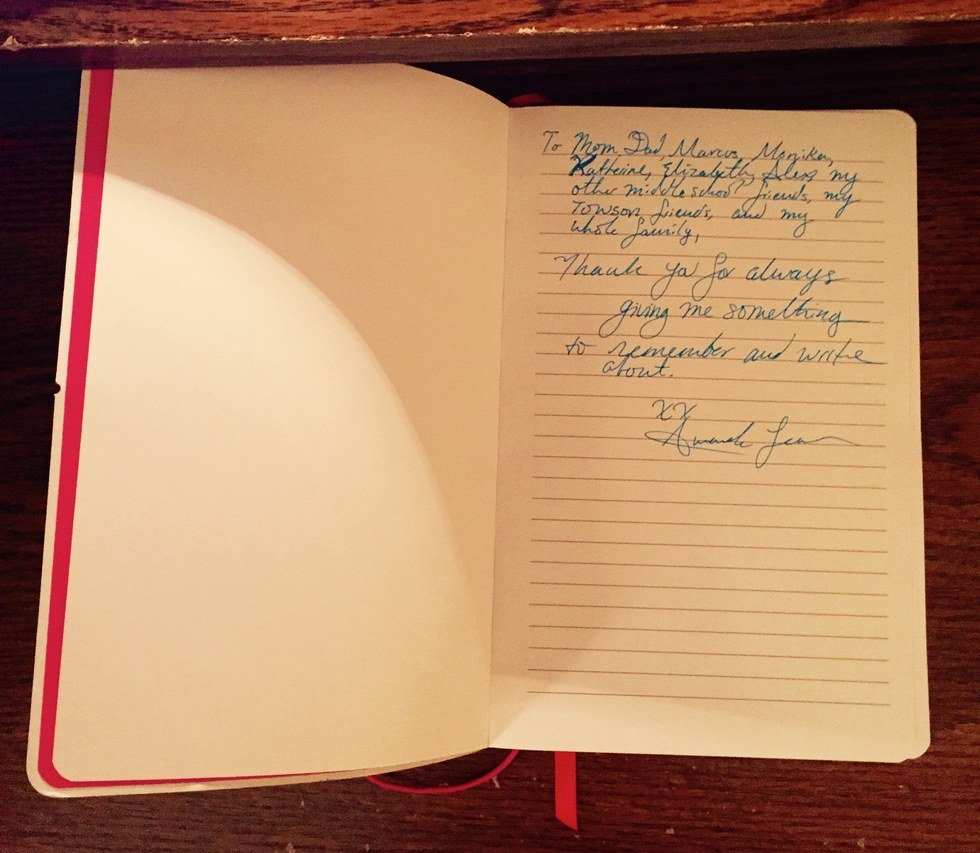 To Mom, Dad, Marcus, Monika,
Katherine, Elizabeth, Alex, my
other middle school friends, my
Towson friends, and my
whole family,
Thank ya for always
giving me something
to remember and write
about.
XX
Amanda